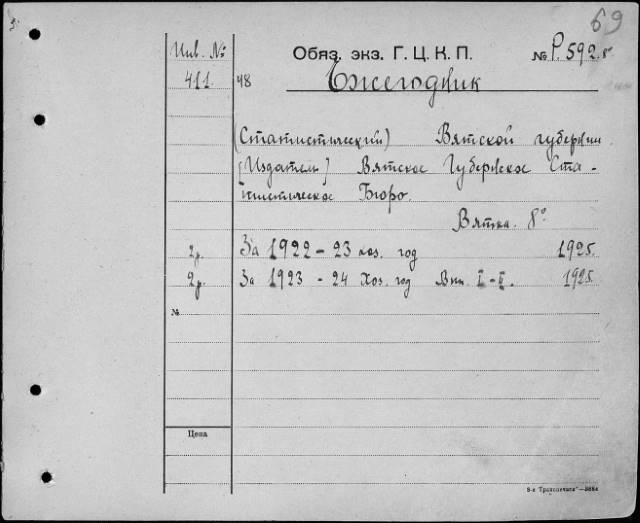 69
Инв. №
Обяз. экз. Г. Ц. К. П.
№ Р. 592.
411
48
Ежегодник
(Статистический) Вятской губернии
[Издатель] Вятское Губернское Ста-
тистическое Бюро.
Вятка. 8°
2р. За 1922-23 хоз. год 1925.
2р. За 1923-24 Хоз. год Вып. I-II. 1925
№
Цена